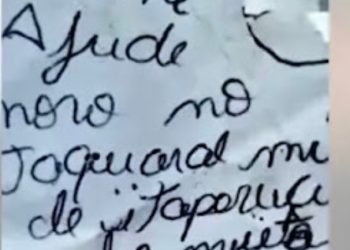 Ajude
noro no
Jaguaral mu
de itaparica
muito